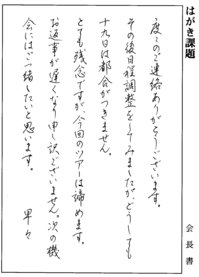 はがき課題
度々のご連絡ありがとうございます。
その後日程調整をしてみましたがどうしても
十九日は都合がつきません。
とても残念ですが、今回のツアーは諦めます。
お返事が遅くなり申し訳ございません。次の機
会にはご一緒したいと思います。
早々
会長書